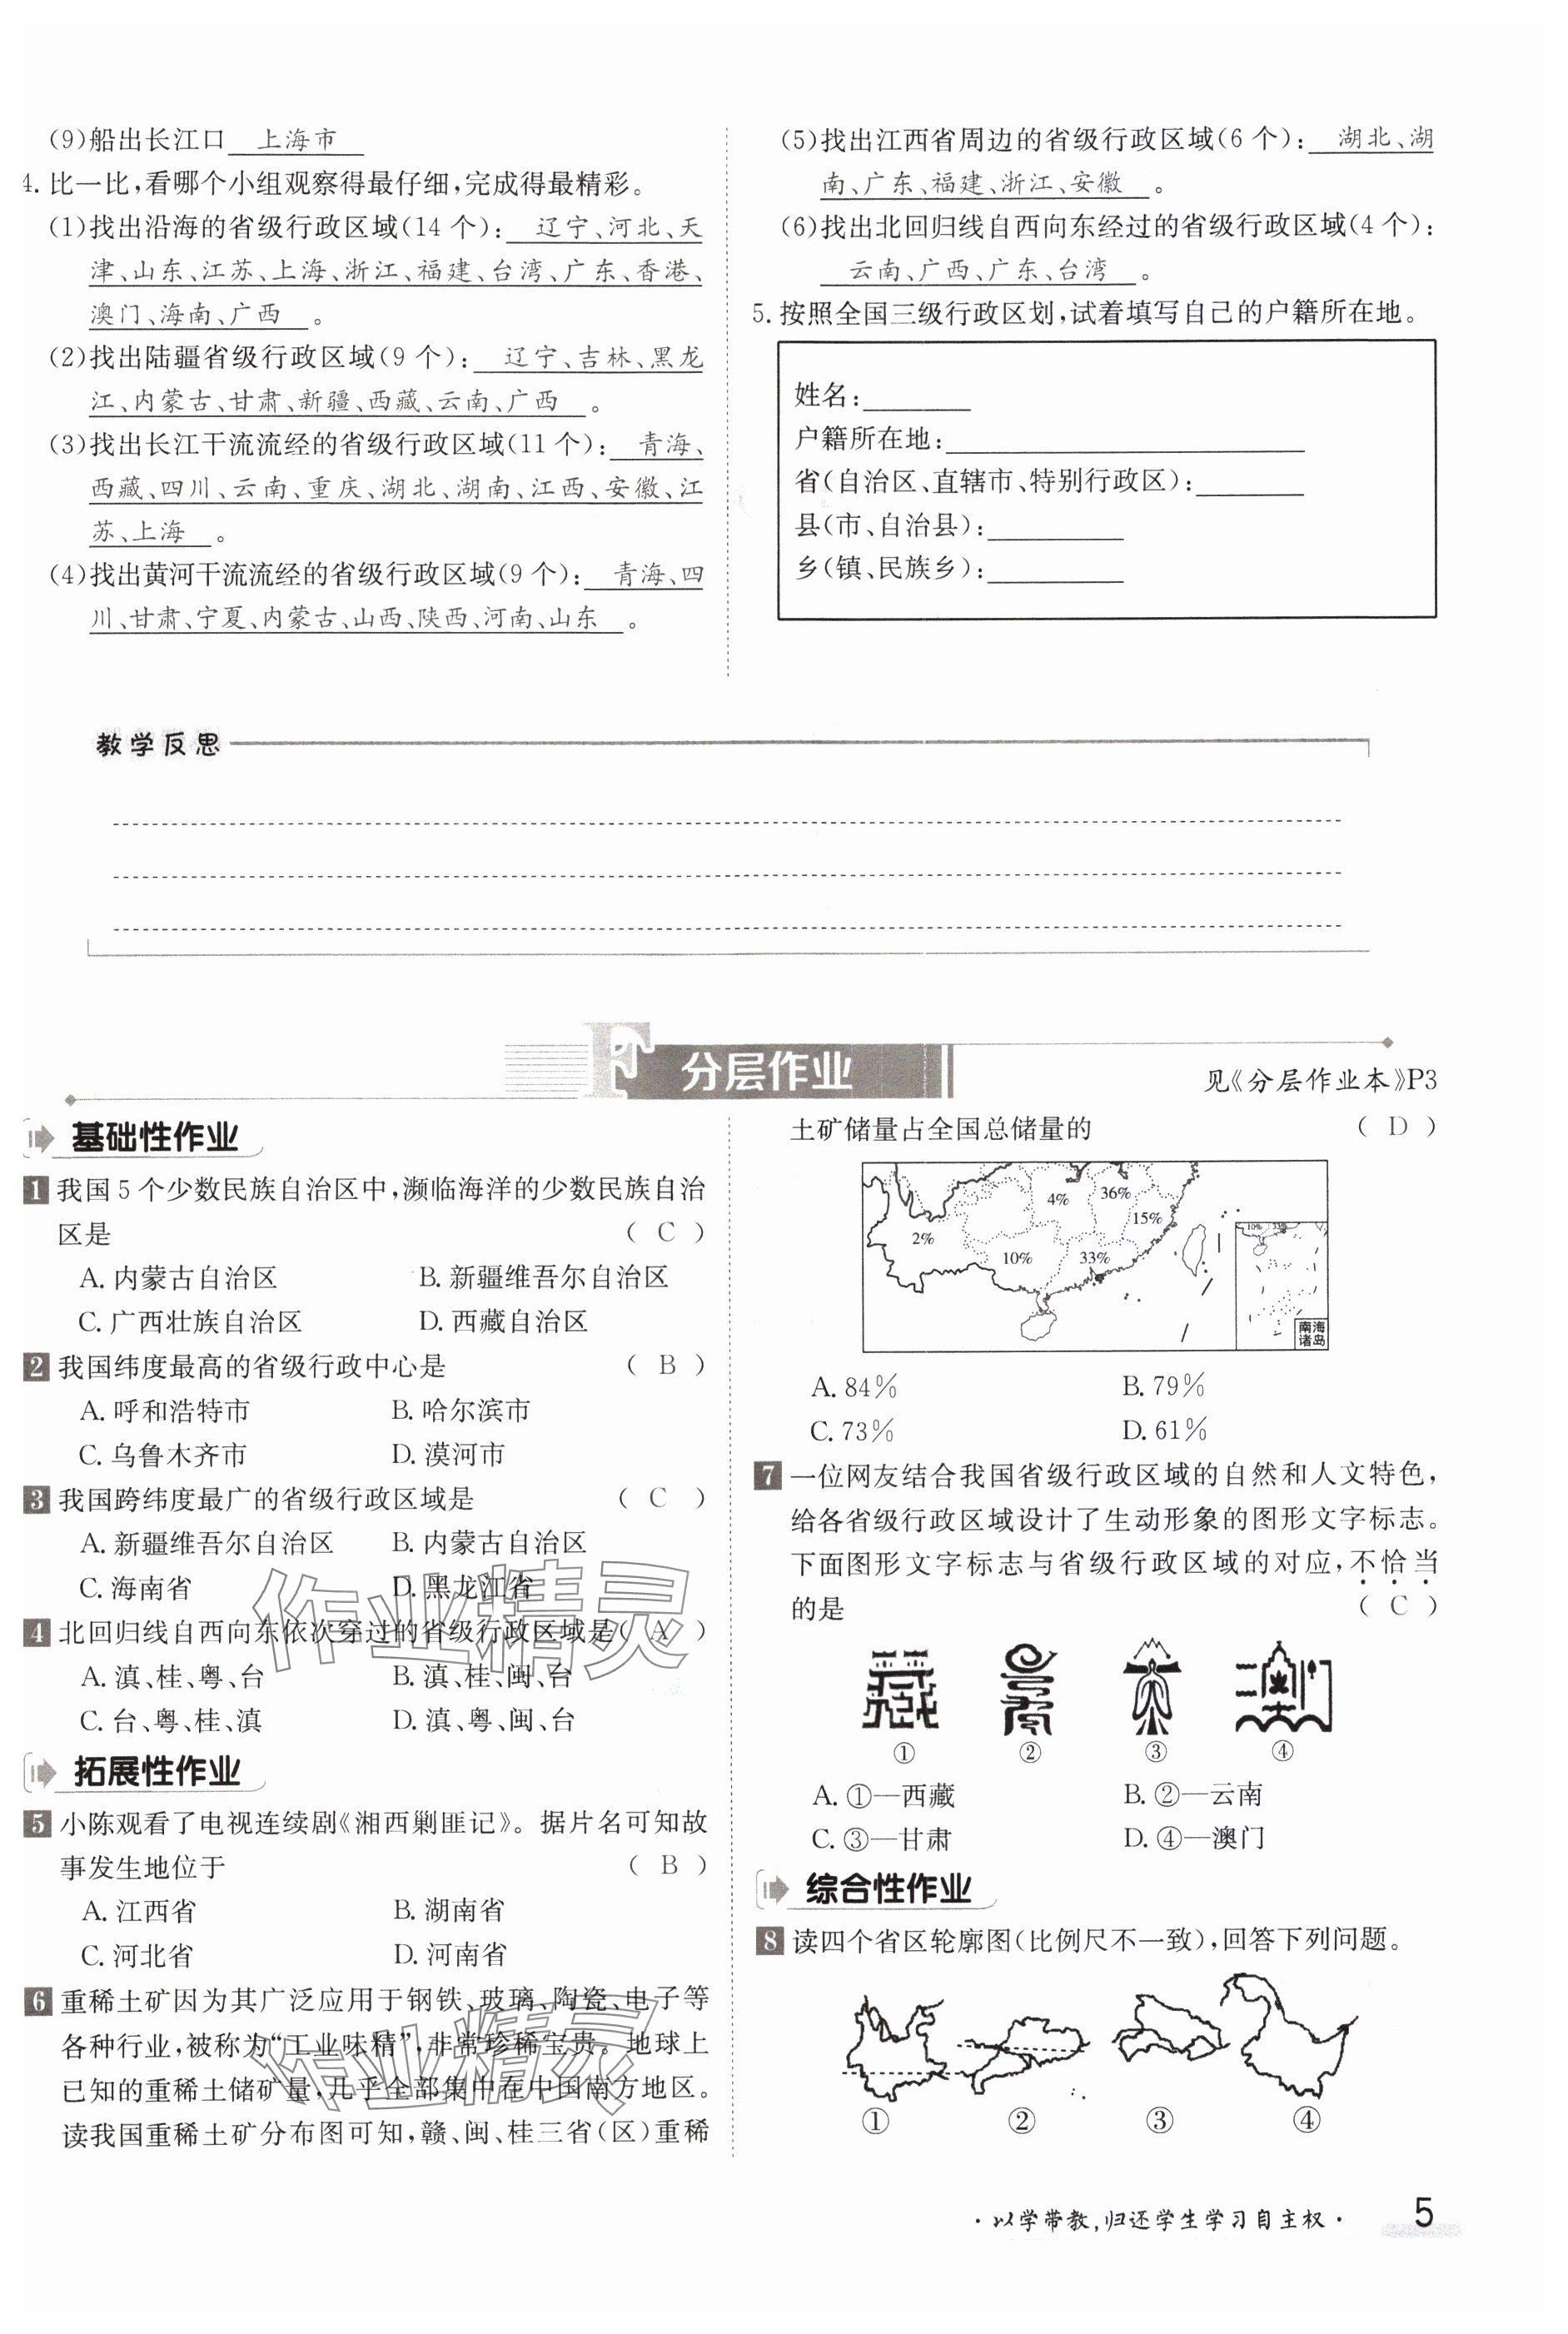 (9)船出长江口 上海市
4. 比一比,看哪个小组观察得最仔细,完成得最精彩。
(1)找出沿海的省级行政区域(14 个): 辽宁、河北、天
津、山东、江苏、上海、浙江、福建、台湾、广东、香港、
澳门、海南、广西 。
(2)找出陆疆省级行政区域(9 个): 辽宁、吉林、黑龙
江、内蒙古、甘肃、新疆、西藏、云南、广西 。
(3)找出长江干流流经的省级行政区域(11 个): 青海、
西藏、四川、云南、重庆、湖北、湖南、江西、安徽、江
苏、上海 。
(4)找出黄河干流流经的省级行政区域(9 个): 青海、四
川、甘肃、宁夏、内蒙古、山西、陕西、河南、山东 。
(5)找出江西省周边的省级行政区域(6 个): 湖北、湖
南、广东、福建、浙江、安徽 。
(6)找出北回归线自西向东经过的省级行政区域(4 个):
云南、广西、广东、台湾 。
5. 按照全国三级行政区划,试着填写自己的户籍所在地。
姓名:
户籍所在地:
省(自治区、直辖市、特别行政区):
县(市、自治县):
乡(镇、民族乡):
教学反思
F 分层作业
见《分层作业本》P3
基础性作业
1 我国 5 个少数民族自治区中,濒临海洋的少数民族自治
区是 ( C )
A. 内蒙古自治区 B. 新疆维吾尔自治区
C. 广西壮族自治区 D. 西藏自治区
2 我国纬度最高的省级行政中心是 ( B )
A. 呼和浩特市 B. 哈尔滨市
C. 乌鲁木齐市 D. 漠河市
3 我国跨纬度最广的省级行政区域是 ( C )
A. 新疆维吾尔自治区 B. 内蒙古自治区
C. 海南省 D. 黑龙江省
4 北回归线自西向东依次穿过的省级行政区域是( A )
A. 滇、桂、粤、台 B. 滇、桂、闽、台
C. 台、粤、桂、滇 D. 滇、粤、闽、台
作业精灵
拓展性作业
5 小陈观看了电视连续剧《湘西剿匪记》。据片名可知故
事发生地位于 ( B )
A. 江西省 B. 湖南省
C. 河北省 D. 河南省
6 重稀土矿因为其广泛应用于钢铁、玻璃、陶瓷、电子等
各种行业,被称为“工业味精”,非常珍稀宝贵。地球上
已知的重稀土储矿量,几乎全部集中在中国南方地区。
读我国重稀土矿分布图可知,赣、闽、桂三省(区)重稀
作业精灵
土矿储量占全国总储量的 ( D )
4% 36%
15%
2%
10% 33%
10% 33%
南海
诸岛
A. 84% B. 79%
C. 73% D. 61%
7 一位网友结合我国省级行政区域的自然和人文特色,
给各省级行政区域设计了生动形象的图形文字标志。
下面图形文字标志与省级行政区域的对应,不恰当
的是 ( C )
① ② ③ ④
A. ①—西藏 B. ②—云南
C. ③—甘肃 D. ④—澳门
综合性作业
8 读四个省区轮廓图(比例尺不一致),回答下列问题。
① ② ③ ④
· 以学带教,归还学生学习自主权 · 5